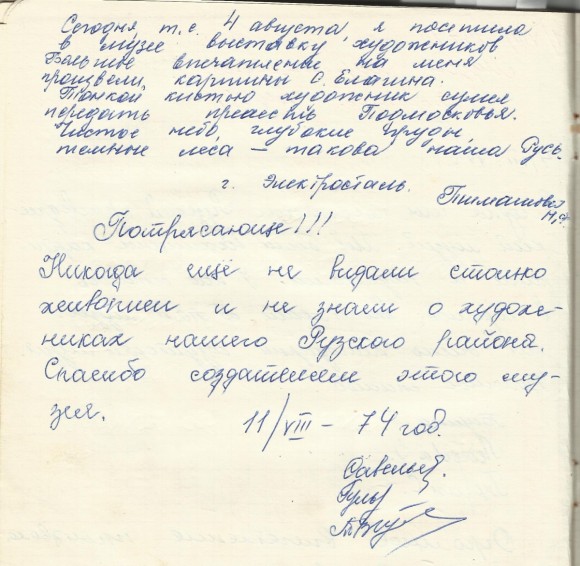 Сегодня т.е. 4 августа, я посетила
в музее выставку художников
Большое впечатление на меня
произвели, картины С. Елагина.
Тонкой кистью художник сумел
передать прелесть Подмосковья.
Чистое небо, глубокие пруды,
темные леса – такова наша Русь.
г. Электросталь.
Пимашова
Н.Ф.
Потрясающе!!!
Никогда ещё не видали столько
живописи и не знали о худож-
никах нашего Рузского района.
Спасибо создателям этого му-
зея.
11/VIII – 74 год.